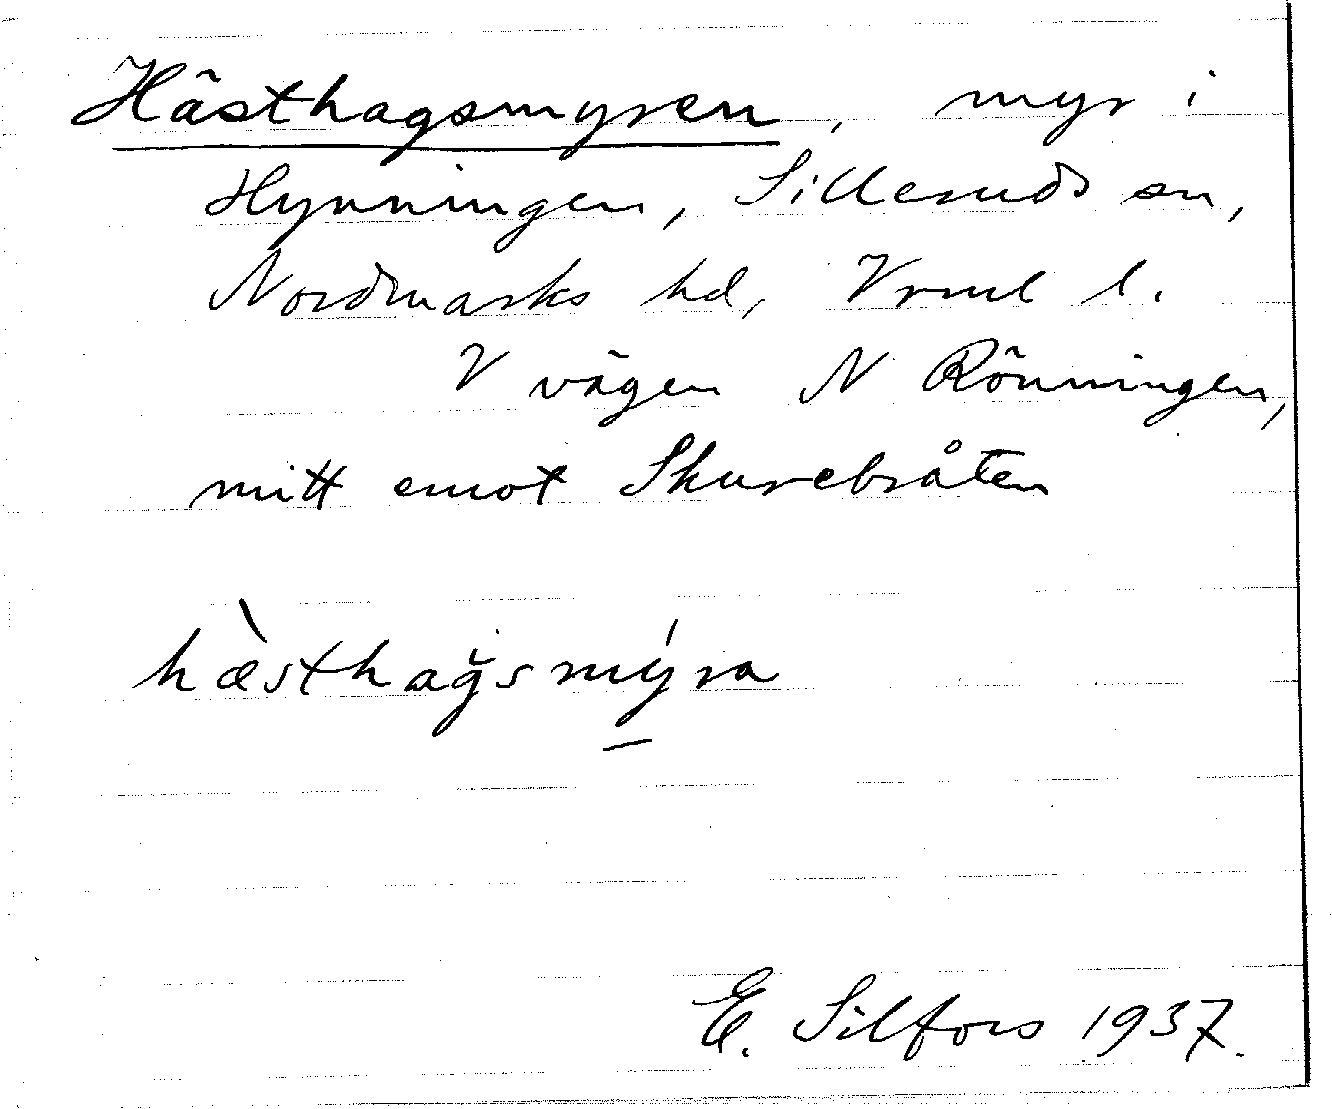 Hästhagsmyren, myr i
Hynningen, Sillerud sn,
Nordmarks hd, Vrml l.
V vägen N Rönningen,
mitt emot Skurebråten
hæ̀sthağsmýra
E. Silfors 1937.